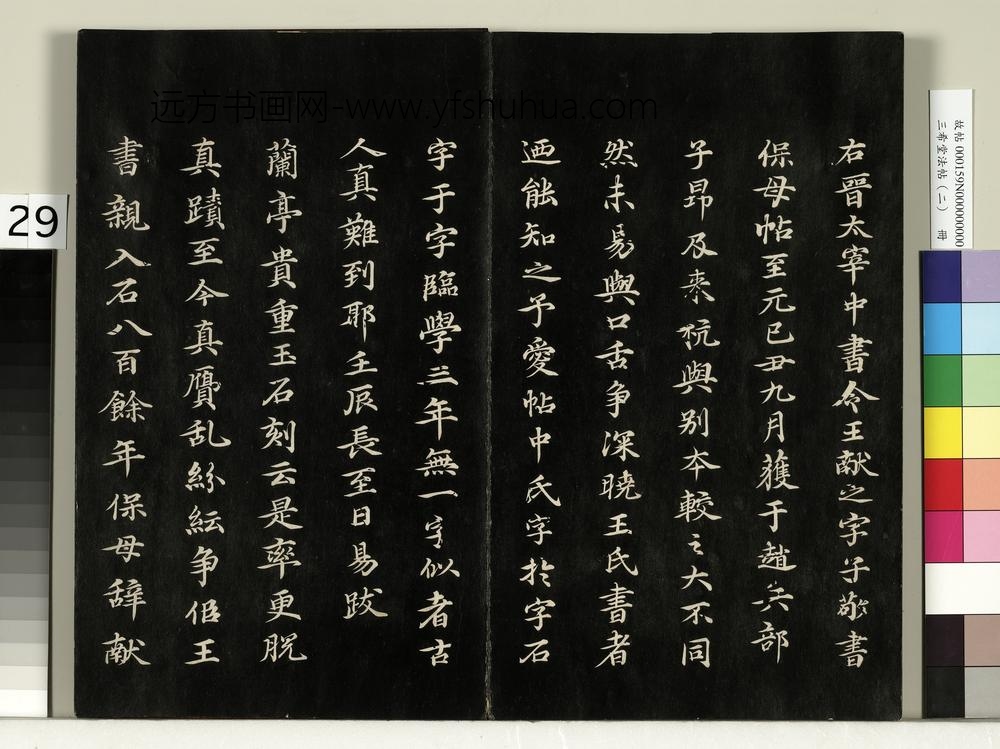 右晉太宰中書令王献之字子敬書
保母帖至元已丑九月獲于趙兵部
子昂及来杭與别本較之大不同
然未易與口舌争深曉王氏書者
廼能知之予愛帖中氏字於字石
字于字臨學三年無一字似者古
人真難到耶壬辰長至日易跋
蘭亭貴重玉石刻云是率更脱
真蹟至今真贋乱絲紜争佀王
書親入石八百餘年保母辞献
远方书画网-www.yfshuhua.com
故帖 000159N000000000
三希堂法帖（二） 冊
29